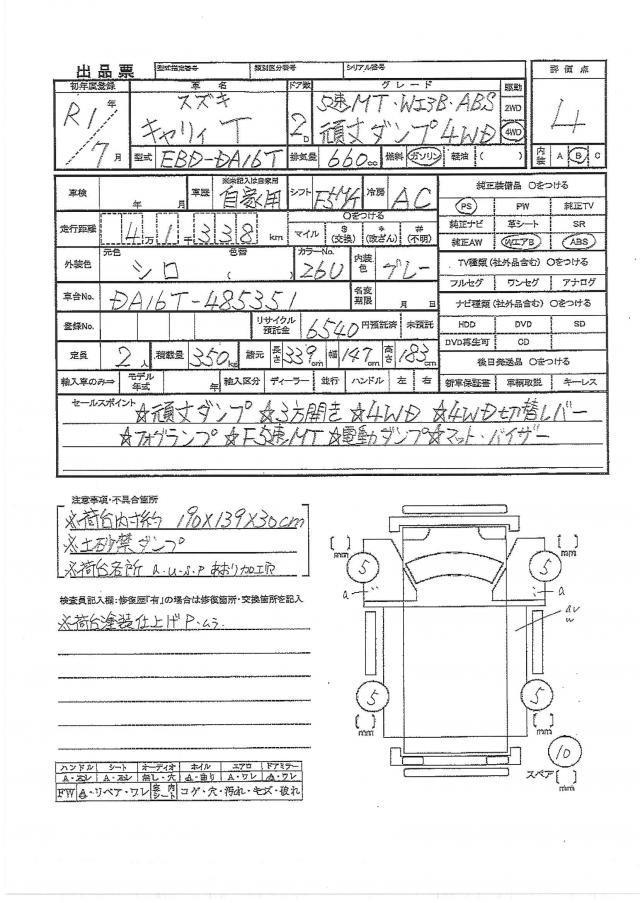 出品票 型式指定番号 類別区分番号 シリアル番号
初年度登録 車名 ドア数 グレード 駆動 評価点
R1年 スズキ 2D 5速MT・WエアB・ABS 2WD 4
7月 キャリィT 頑丈ダンプ4WD 4WD
型式 EBD-DA16T 排気量 660cc 燃料 ガソリン 軽油 ( ) 内装 A B C
車検 年 月 車歴 ※未記入は自家用 自家用 シフト F5MT 冷房 AC 純正装備品 〇をつける
PS PW 純正TV
走行距離 4万1千338km 〇をつける マイル $(交換) *(改ざん) #(不明) 純正ナビ 革シート SR
外装色 元色 シロ 色替 ( ) カラーNo. 26U 内装色 グレー 純正AW WエアB ABS
TV種類(社外品含む) 〇をつける
フルセグ ワンセグ アナログ
車台No. DA16T-485351 名変期限 月 日 ナビ種類(社外品含む) 〇をつける
登録No. リサイクル預託金 6540円預託済 未預託 HDD DVD SD
DVD再生可 CD
定員 2人 積載量 350kg 諸元 長さ339cm 幅147cm 高さ183cm 後日発送品 〇をつける
輸入車のみ⇒ モデル年式 年 輸入区分 ディーラー 並行 ハンドル 左 右 新車保証書 車輌取説 キーレス
セールスポイント ☆頑丈ダンプ ☆3方開き ☆4WD ☆4WD切替レバー
☆フォグランプ ☆F5速MT ☆電動ダンプ ☆マット・バイザー
注意事項・不具合箇所
※荷台内寸約 190×139×30cm
※土砂禁ダンプ
※荷台各所 a.u.s.P あおり加工穴
検査員記入欄:修復歴『有』の場合は修復箇所・交換箇所を記入
※荷台塗装仕上げP.ムラ
[ ]mm 5 5 [ ]mm
a a
5 5
[ ]mm [ ]mm
10
スペア [ ]mm
ハンドル シート オーディオ ホイル エアロ ドアミラー
A・スレ A・スレ 無し・穴 A・曲り A・ワレ A・ワレ
FW A・リペア・ワレ 室内シート コゲ・穴・汚れ・キズ・破れ